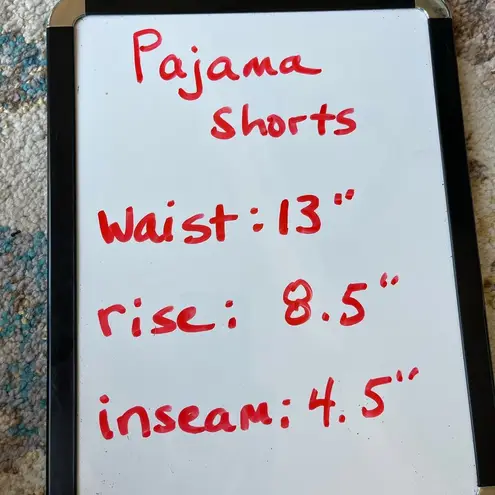 Pajama
shorts
waist: 13"
rise: 8.5"
inseam: 4.5"